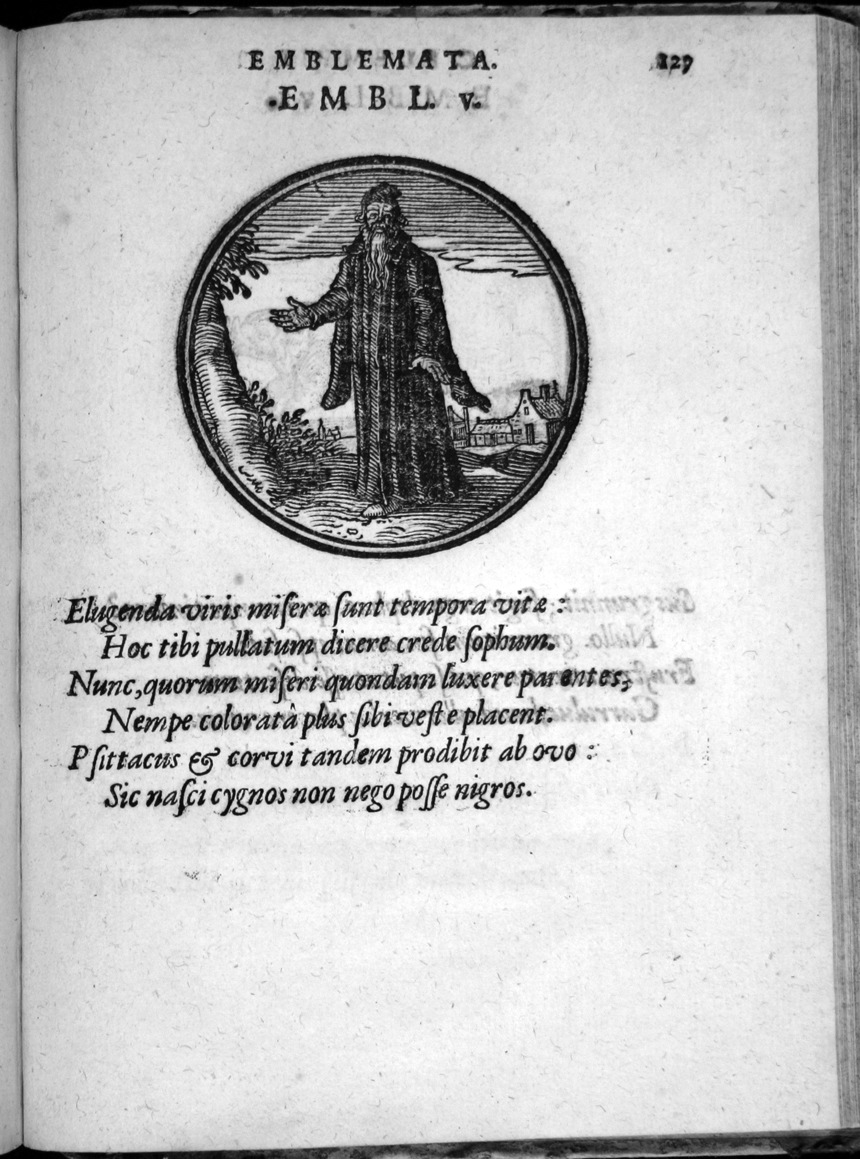 EMBLEMATA.
129
EMBL. v.
Elugenda viris miſeræ ſunt tempora vitæ :
Hoc tibi pullatum dicere crede ſophum.
Nunc, quorum miſeri quondam luxere parentes,
Nempe coloratâ plus ſibi veſte placent.
Pſittacus & corvi tandem prodibit ab ovo :
Sic naſci cygnos non nego poſſe nigros.